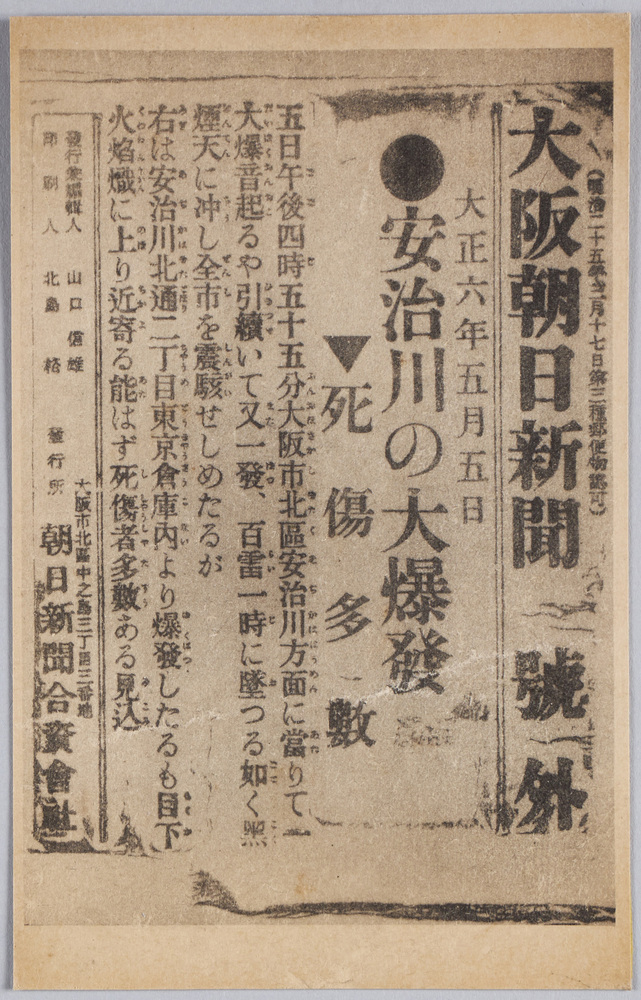 (明治二十五年三月十七日第三種郵便物認可)
大阪朝日新聞 號外
大正六年五月五日
●安治川の大爆發
▼死傷多數
五日午後四時五十五分大阪市北區安治川方面に當りて一
大爆音起るや引續いて又一發、百雷一時に墜つる如く黑
煙天に冲し全市を震駭せしめたるが
右は安治川北通二丁目東京倉庫内より爆發したるも目下
火焰熾に上り近寄る能はず死傷者多數ある見込
發行兼編輯人 山口信雄
印刷人 北島
發行所
大阪市北區中之島三丁目三番地
朝日新聞合資會社